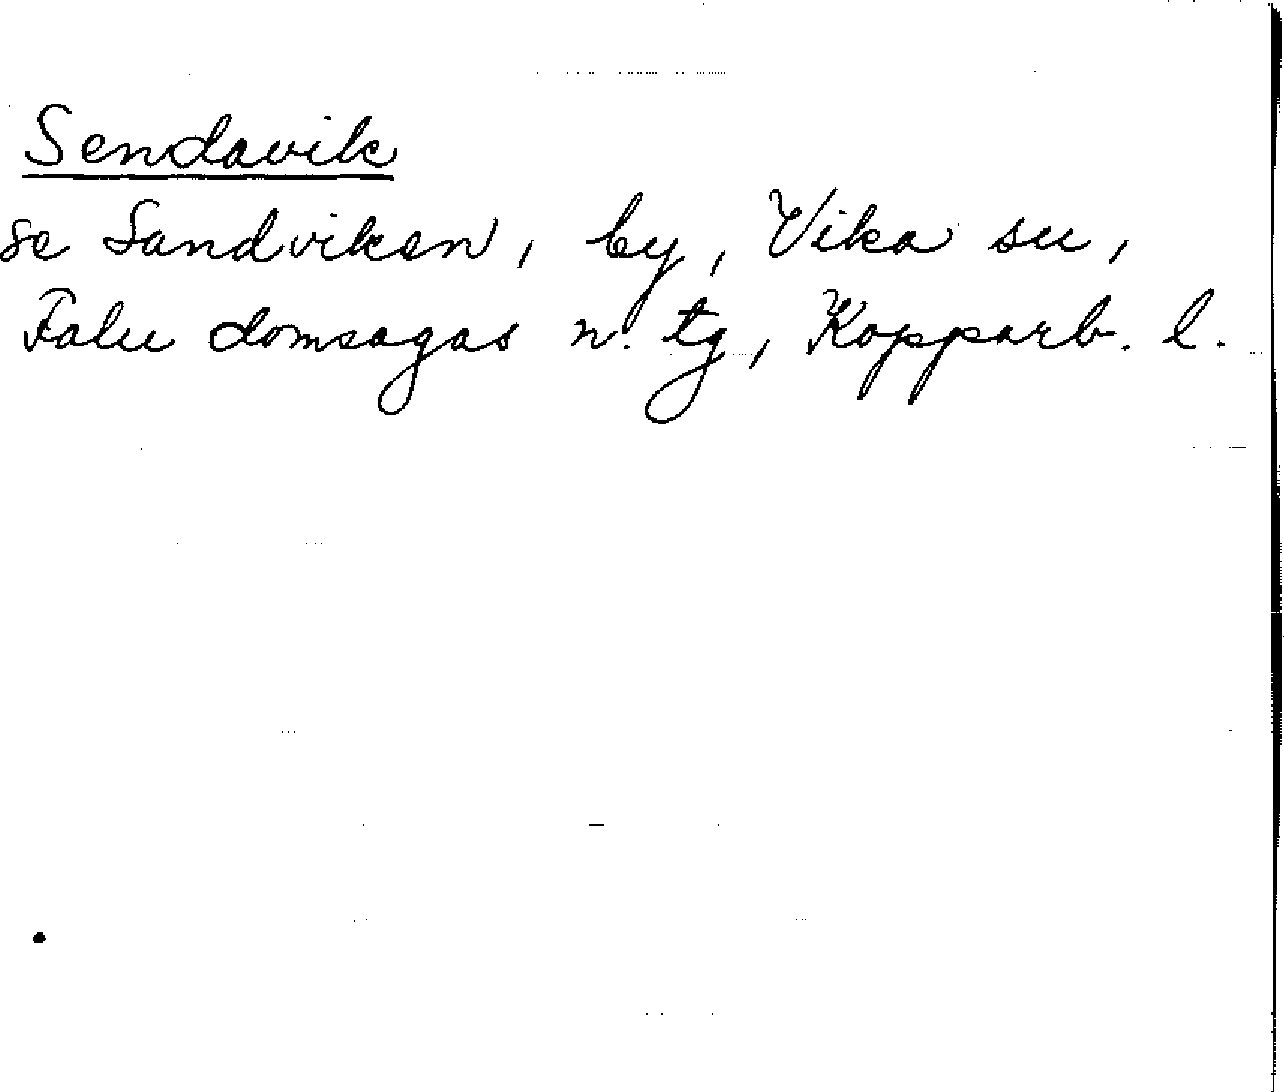 Sendavik
se Sandviken, by, Vika sn,
Falu domsagas n. tg, Kopparb. l.